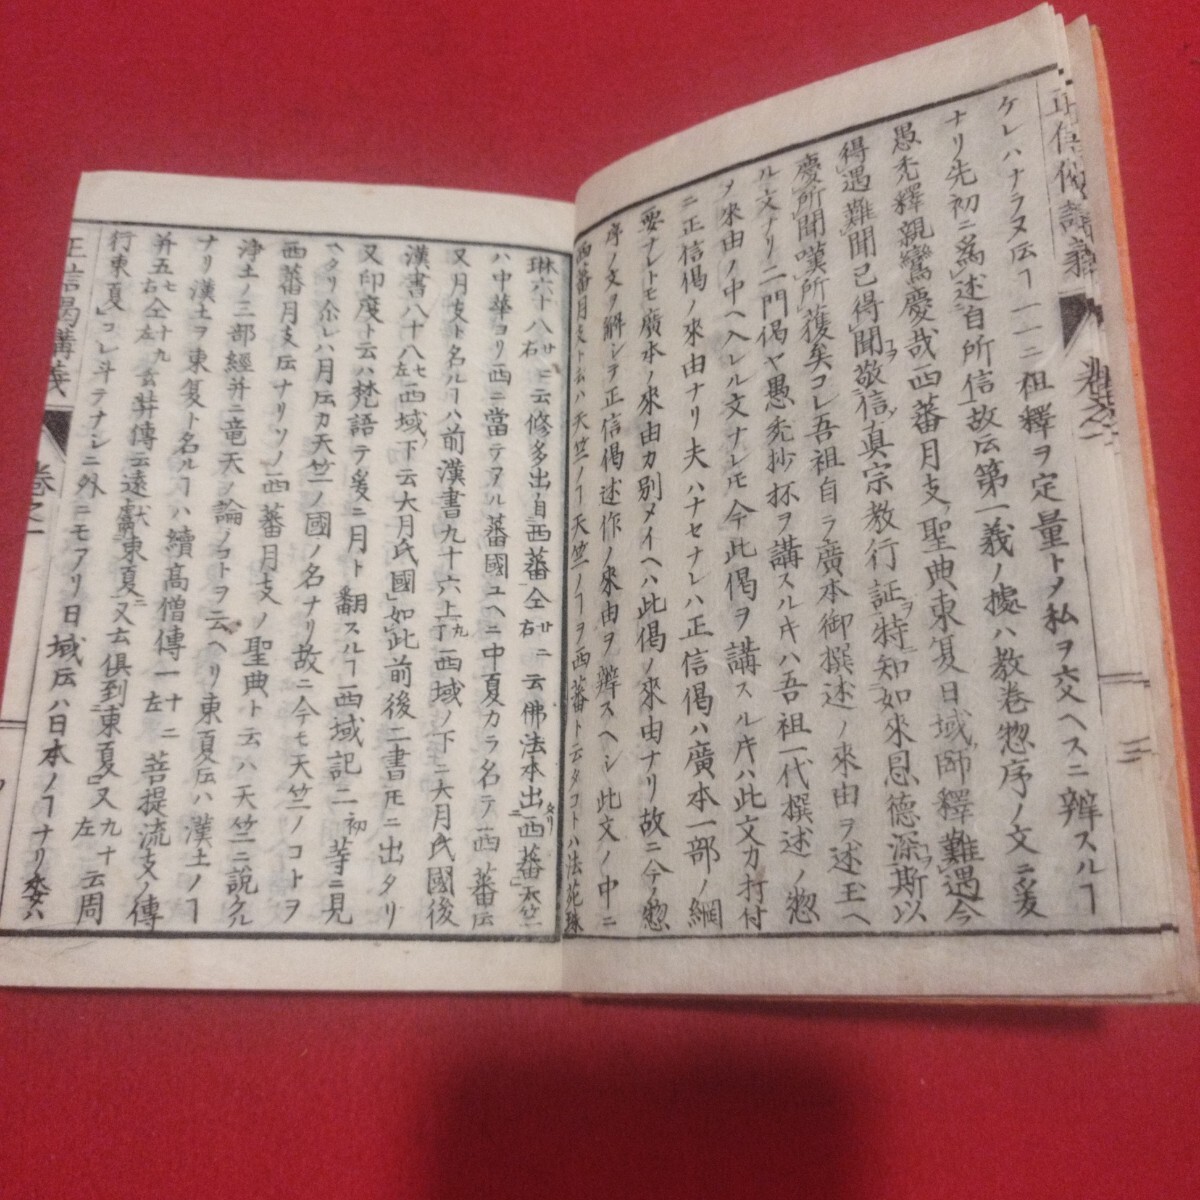 正信偈講義 卷之一
ケレハナラヌ云ヿ一一ニ祖釋ヲ定量トメ私ヲ交ヘスニ辨スルヿ
ナリ先初ニ為述自所信故云第一義ノ據ハ教卷惣序ノ文ニ爰
愚禿釋親鸞慶哉西蕃月支聖典東夏日域師釋難遇今
得遇難聞已得聞敬信真宗教行証特知如來恩德深斯以
慶所聞嘆所獲矣コレ吾祖自ラ廣本御撰述ノ來由ヲ述玉ヘ
ル文ナリ二門偈ヤ愚禿抄抔ヲ講スルキハ吾祖一代撰述ノ惣
ヲ來由ノ中ヘ入レル文ナレモ今此偈ヲ講スルキハ此文カ打付
ニ正信偈ノ來由ナリ夫ハナセナレハ正信偈ハ廣本一部ノ綱
要ナレトモ廣本ノ來由カ別メイヘハ此偈ノ來由ナリ故ニ今ノ惣
序ノ文ヲ解シヲ正信偈述作ノ來由ヲ辨スヘシ此文ノ中ニ
西蕃月支ト云ハ天竺ノヿ天竺ノヿヲ西蕃ト云タコトハ法苑珠
琳六十八廿右ニ云修多出自西蕃仝廿右ニ云佛法本出西蕃天竺
ハ中華ヨリ西ニ當テアル蕃國ユヘニ中夏カラ名テ西蕃云
又月支ト名ルヿハ前漢書九十六上九丁西域ノ下ニ大月氏國後
漢書八十八七左西域下云大月氏國如此前後二書モニ出タリ
又印度ト云ハ梵語テ爰ニ月ト翻スルヿ西域記二初等ニ見
ヘタリ尒レハ月云カ天竺ノ國ノ名ナリ故ニ今モ天竺ノコトヲ
西蕃月支云ナリソノ西蕃月支ノ聖典ト云ハ天竺ニ説タル
浄土ノ三部經并ニ竜天ノ論ノコトヲ云ヘリ東夏云ハ漢土ノヿ
ナリ漢土ヲ東夏ト名ルヿハ續高僧傳一十二左菩提流支ノ傳
并五七右仝十九左玄奘傳云遠獻東夏又云俱到東夏又九十左云周
行東夏コレ斗テナシニ外ニモアリ日域云ハ日本ノヿナリ委ハ
正信偈講義 卷之一